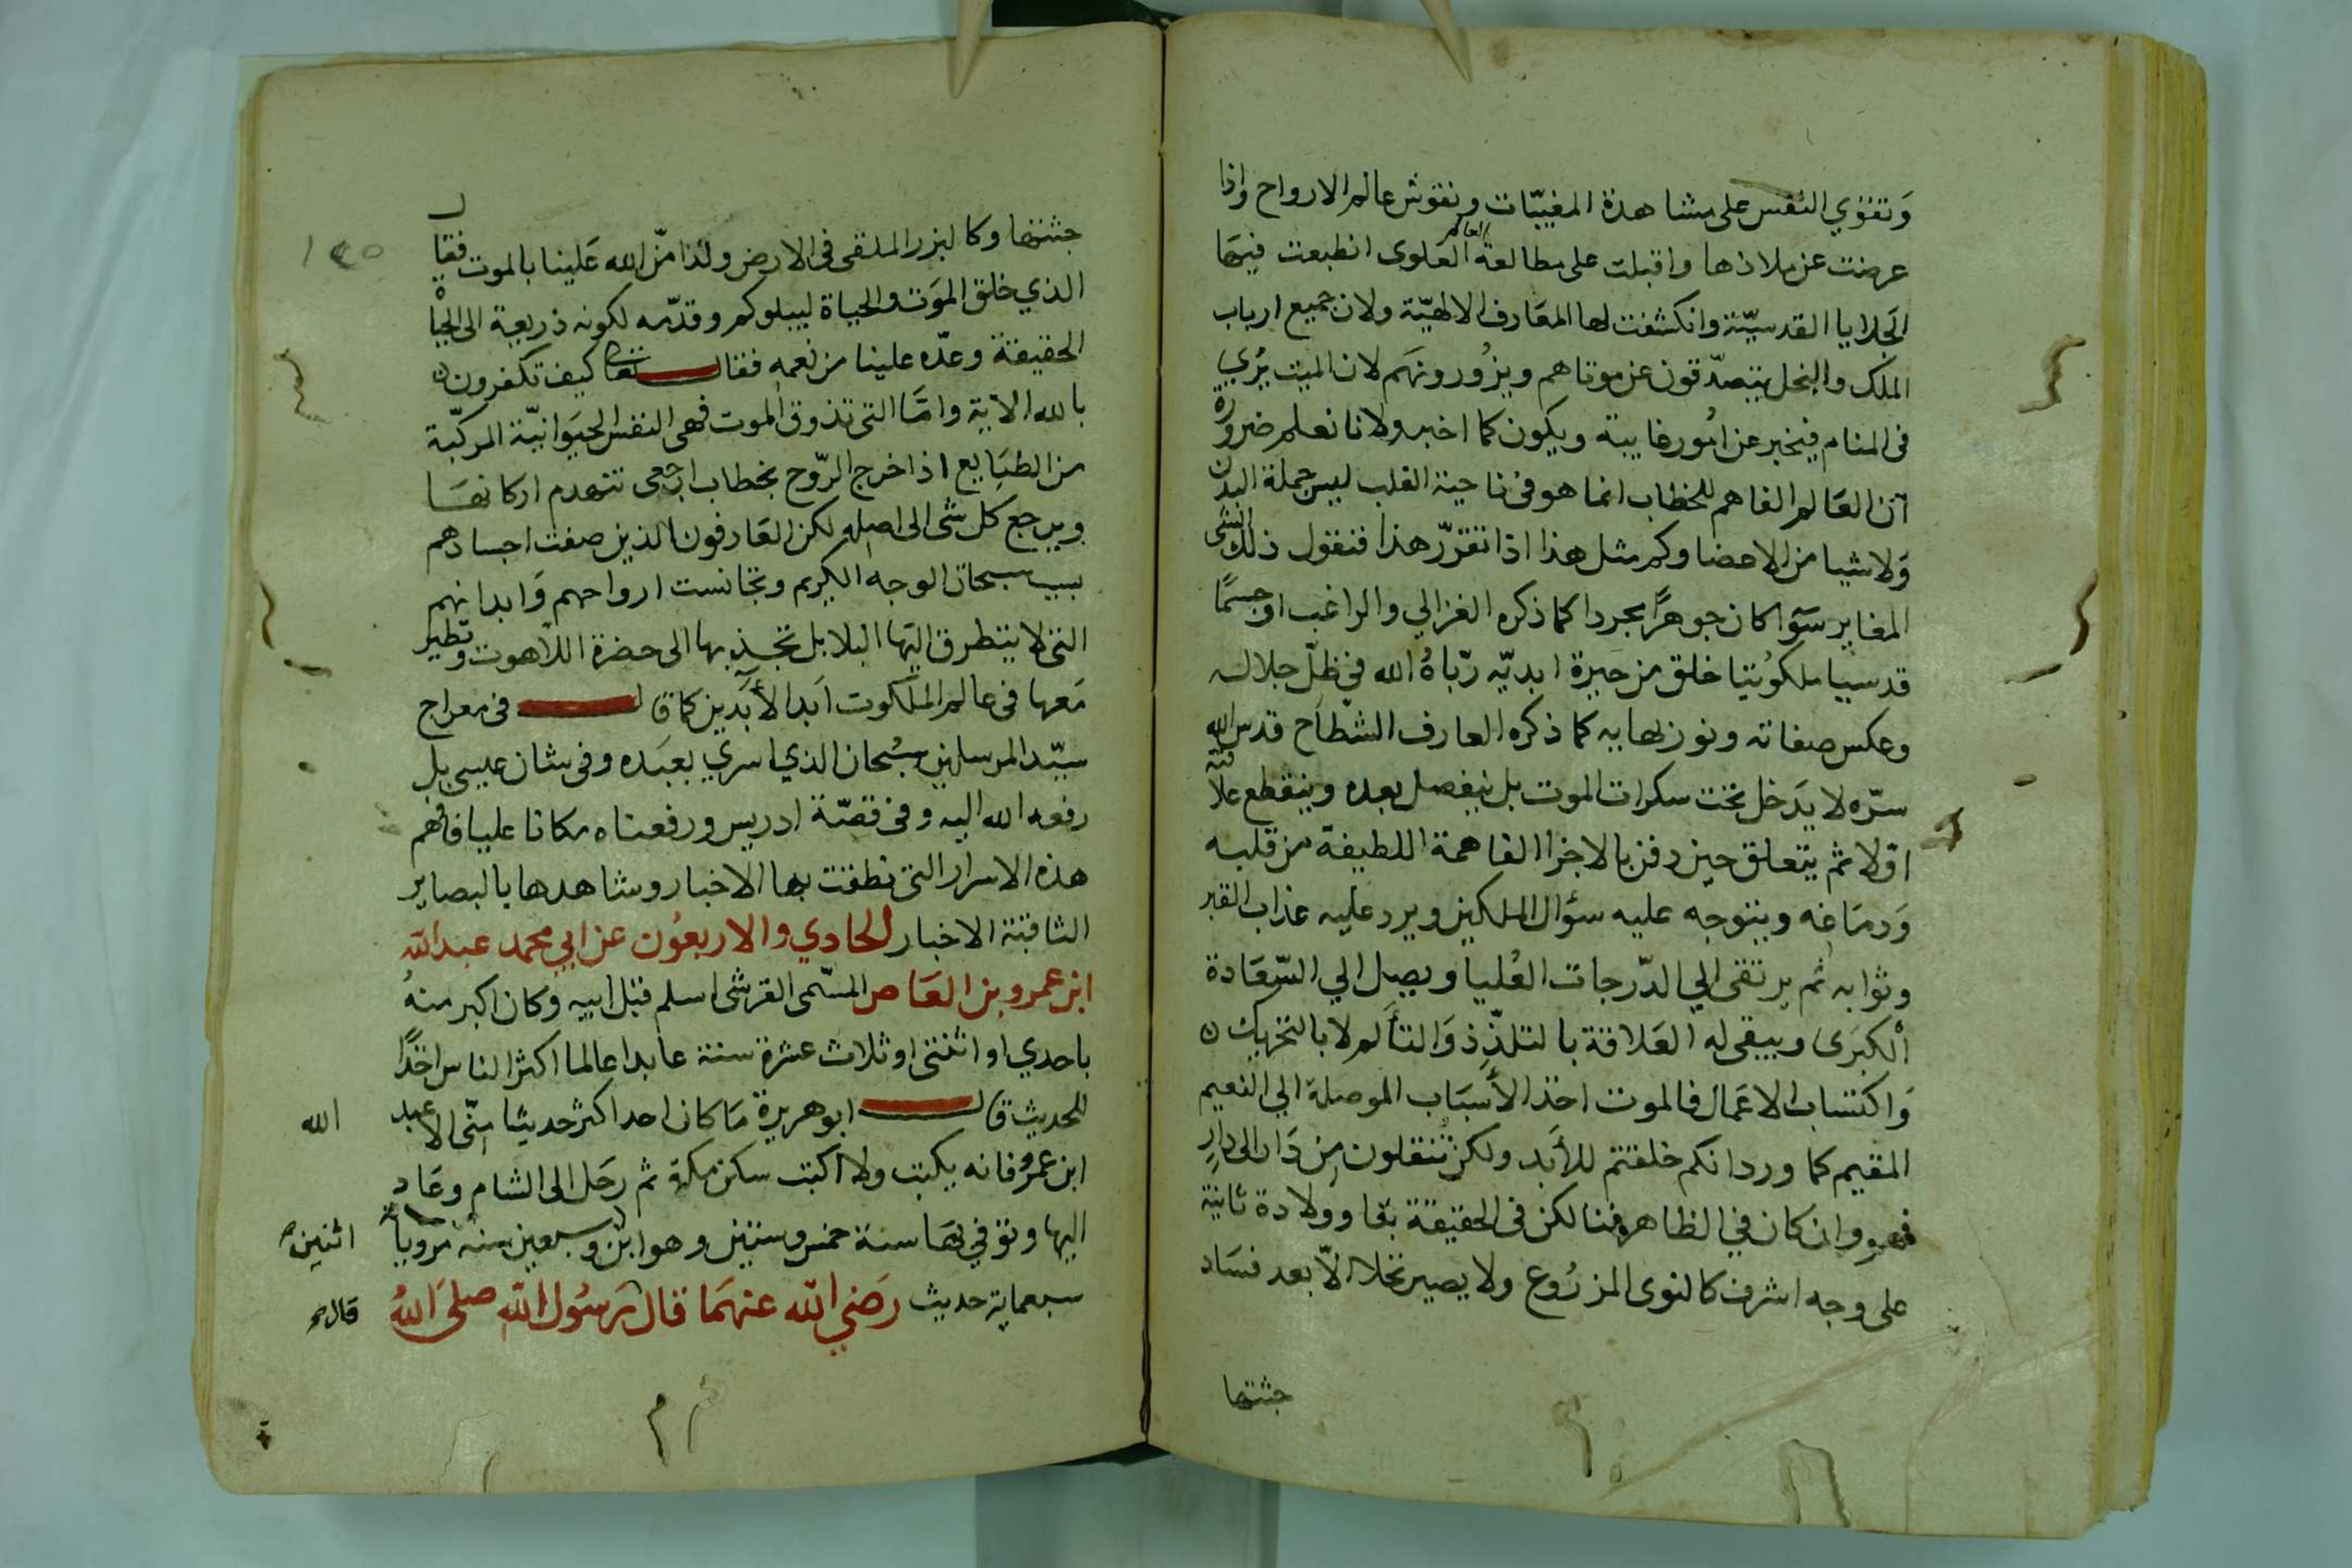 وتقوي النفس على مشاهدة المغيبات ونقوش عالم الارواح واذا
عرضت عن ملاذها واقبلت على مطالعة العالم العلوى انطبعت فيها
الجلايا القدسية وانكشفت لها المعارف الالهية ولان جميع ارباب
الملك والنحل يتصدقون عن موتاهم ويزورونهم لان الميت يري
فى المنام فيخبر عن امور غايبة ويكون كما اخبر ولانا نعلم ضرورة
ان العالم الفاهم للخطاب انما هو فى ناحية القلب ليس جملة البدن
ولا شيا من الاعضا وكم مثل هذا اذا تقرر هذا فنقول ذلك الشى
المغاير سوآ كان جوهرا مجردا كما ذكره الغزالي والراغب او جسما
قدسيا ملكوتيا خلق من حيرة ابديه رباه الله في ظل جلاله
وعكس صفاته ونور بهايه كما ذكره العارف الشطاح قدس الله
سره لا يدخل تحت سكرات الموت بل ينفصل بعده وينقطع علاقته
اولا ثم يتعلق حين دفن بالاجزا الفاهمة اللطيفة من قلبه
ودماغه ويتوجه عليه سؤال الملكين ويرد عليه عذاب القبر
وثوابه ثم يرتقى الي الدرجات العليا ويصل الي السعادة
الكبرى ويبقى له العلاقة بالتلذذ والتألم لا بالتحريك
واكتساب الاعمال فالموت احد الأسباب الموصلة الي النعيم
المقيم كما ورد انكم خلقتم للأبد ولكن تنتقلون من دار الى دار
فهو وان كان في الظاهر فنا لكن فى الحقيقة بقا وولادة ثانية
على وجه اشرف كالنوى المزروع ولا يصير نخلا الا بعد فساد
جثتها
١٤٥
جثتها وكالبزر الملقى فى الارض ولذا من الله علينا بالموت فقال
الذي خلق الموت والحياة ليبلوكم وقدمه لكونه ذريعة الى الحيا
الحقيقة وعده علينا من نعمه فقال تعا كيف تكفرون
بالله الاية واما التى تذوق الموت فهى النفس الحيوانية المركبة
من الطبايع اذا خرج الروح بخطاب ارجعى تنهدم اركانها
ويرجع كل شى الى اصله لكن العارفون الذين صفت اجسادهم
بسبب سبحات الوجه الكريم وتجانست ارواحهم وابدانهم
التى لا يتطرق اليها البلا بل تجذبها الى حضرة اللاهوت وتطير
معها فى عالم الملكوت ابد الأبدين كما قال فى معراج
سيد المرسلين سبحان الذي اسري بعبده وفى شان عيسى بل
رفعه الله اليه وفى قصة ادريس ورفعناه مكانا عليا فافهم
هذه الاسرار التى نطقت بها الاخبار وشاهدها بالبصاير
الثاقبة الاخبار الحادي والاربعون عن ابي محمد عبد الله
ابن عمرو بن العاص السهمى القرشى اسلم قبل ابيه وكان اكبر منه
باحدي او اثنتى او ثلاث عشرة سنة عابدا عالما اكثر الناس اخذا
للحديث قال ابو هريرة ما كان احد اكثر حديثا منى الا عبد الله
ابن عمرو فانه يكتب ولا اكتب سكن مكة ثم رحل الى الشام وعاد
اليها وتوفي بها سنة خمس وستين وهو ابن اثنين وسبعين سنة مروياته
سبعماية حديث رضي الله عنهما قال قال رسول الله صلى الله